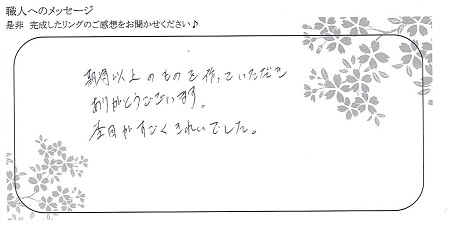 職人へのメッセージ
是非 完成したリングのご感想をお聞かせください♪
期待以上のものを作っていただき
ありがとうございます。
杢目がすごくきれいでした。